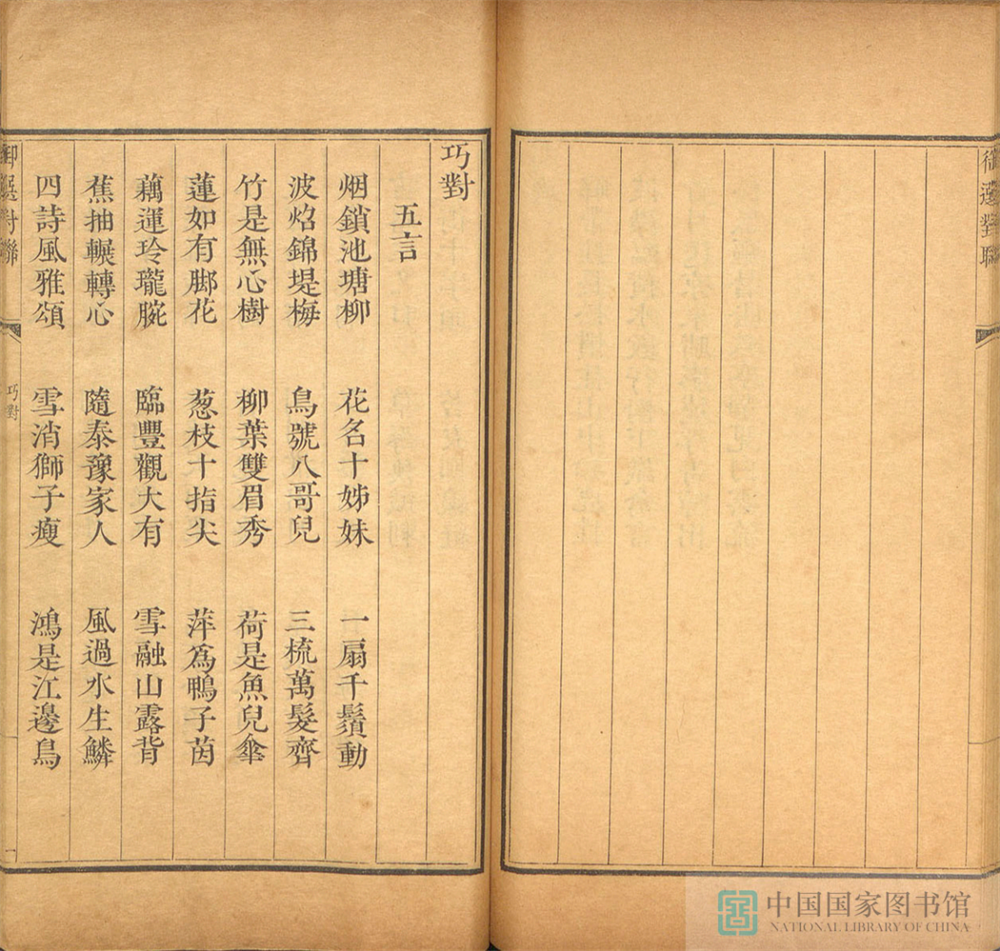 御選對聯
巧對
五言
烟鎖池塘柳　花名十姊妹　一扇千鬚動
波焰錦堤梅　鳥號八哥兒　三梳萬髮齊
竹是無心樹　柳葉雙眉秀　荷是魚兒傘
蓮如有脚花　葱枝十指尖　萍為鴨子茵
藕運玲瓏腕　臨豐觀大有　雪融山露背
蕉抽輾轉心　隨泰豫家人　風過水生鱗
四詩風雅頌　雪消獅子瘦　鴻是江邊鳥
御選對聯
巧對
一
中国国家图书馆
NATIONAL LIBRARY OF CHINA